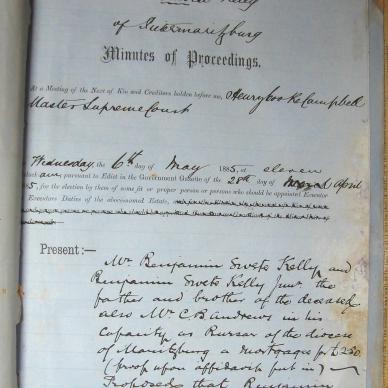 Kelly
of Pietermaritzburg
Minutes of Proceedings.
At a Meeting of the Next of Kin and Creditors holden before me, Henry Cooke Campbell
Master Supreme Court
Wednesday the 6th day of May 1885, at eleven
pursuant to Edict in the Government Gazette of the 28th day of April
5, for the election by them of some fit or proper person or persons who should be appointed Executor
Executors Dative of the abovenamed Estate,
Present:—
Mr Benjamin Swete Kelly and
Benjamin Swete Kelly Junr the
father and brother of the deceased
also Mr C B Andrews in his
capacity as Bursar of the diocese
of Maritzburg a mortgagee for £250
(proof upon affidavit put in)
Proposed that Benjamin